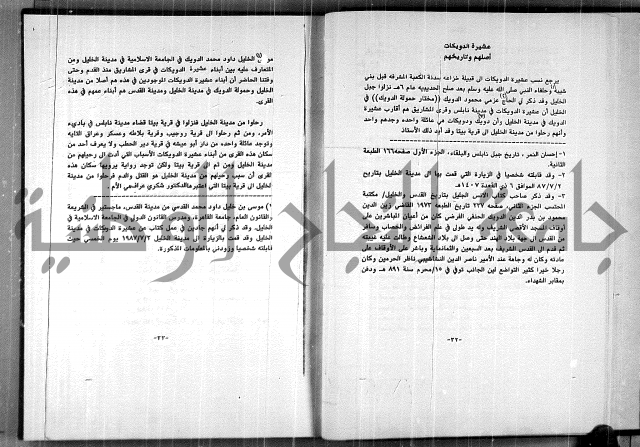 عشيرة الدويكات
أصلهم وتاريخهم
يرجع نسب عشيرة الدويكات الى قبيلة خزاعه سدنة الكعبة المشرفه قبل بني
شيبه وحلفاء النبي صلى الله عليه وسلم بعد صلح الحديبيه عام ٦هـ نزلوا جبل
الخليل وقد ذكر لي الحاج عزمي محمود الدويك ((مختار حمولة الدويك)) في
الخليل أن عشيرة الدويكات في نابلس وقرى المشاريق هم أقارب عشيرة
الدويك في مدينة الخليل وأن دويك ودويكات هي عائلة واحده وجدهم واحد
وأنهم رحلوا من مدينة الخليل الى قرية بيتا وقد أيد ذلك الأستاذ
١- إحسان النمر، تاريخ جبل نابلس والبلقاء، الجزء الأول صفحه١٦٦ الطبعة
الثانية.
٢- وقد قابلته شخصيا في الزيارة التي قمت بها الى مدينة الخليل بتاريخ
٨٧/٧/٢ الموافق ٦ ذي القعده ١٤٠٧هـ
٣- وقد ذكر صاحب كتاب الأنس الجليل بتاريخ القدس والخليل/ مكتبة
المحتسب الجزء الثاني، صفحه ٢٣٧ تاريخ الطبعه ١٩٧٣ القاضي زين الدين
محمود بن بدر الدين الدويك الحنفي الفرضي كان من أعيان المباشرين على
أوقاف المسجد الأقصى الشريف وله يد طولى في علم الفرائض والحساب وسافر
من القدس الى جهة بلاد الهند حتى وصل الى بلاد الشعشاع وطالت عليه غيبته
ثم قدم الى القدس الشريف بعد السبعين والثمانماية وباشر على الأوقاف على
عادته وكان له وجاهة عند الأمير ناصر الدين النشاشيبي ناظر الحرمين وكان
رجلا خيرا كثير التواضع لين الجانب توفي في ١٥/محرم سنة ٨٩١ هـ ودفن
بمقابر الشهداء.
-٢٢-
الخليل داود محمد الدويك في الجامعة الاسلامية في مدينة الخليل ومن
المتعارف عليه بين أبناء عشيرة الدويكات في قرى المشاريق منذ القدم وحتى
وقتنا الحاضر أن أبناء عشيرة الدويكات الموجودين في هذه هم أصلا من مدينة
الخليل وحمولة الدويك في مدينة الخليل ومدينة القدس هم أبناء عمهم في هذه
القرى.
رحلوا من مدينة الخليل فنزلوا في قرية بيتا قضاء مدينة نابلس في باديء
الأمر، ومن ثم رحلوا الى قرية روجيب وقرية بلاطه وعسكر وعراق التايه
وتوجد عائلة واحده من دار أبو عيشه في قرية دير الحطب ولا يعرف أحد من
سكان هذه القرى من أبناء عشيرة الدويكات الأسباب التي أدت الى رحيلهم من
مدينة الخليل ومن ثم الى قرية بيتا ولكن توجد رواية يرويها سكان هذه
القرى أن سبب رحيلهم من مدينة الخليل هو القتال والدم فرحلوا من مدينة
الخليل الى قرية بيتا التي اعتبرها الدكتور شكري عرافي الأم
١) موسى بن خليل داود محمد القدسي من مدينة القدس، ماجستير في الشريعة
والقانون العام، جامعة القاهرة ومدرس القانون الدولي في الجامعة الاسلامية في
الخليل. وقد ذكر لي أنهم جادين في عمل كتاب عن عشيرة الدويكات في مدينة
الخليل وقد قمت بالزيارة الى مدينة الخليل ١٩٨٧/٧/٢ يوم الخميس حيث
قابلته شخصيا وزودني بالمعلومات المذكورة.
-٢٣-